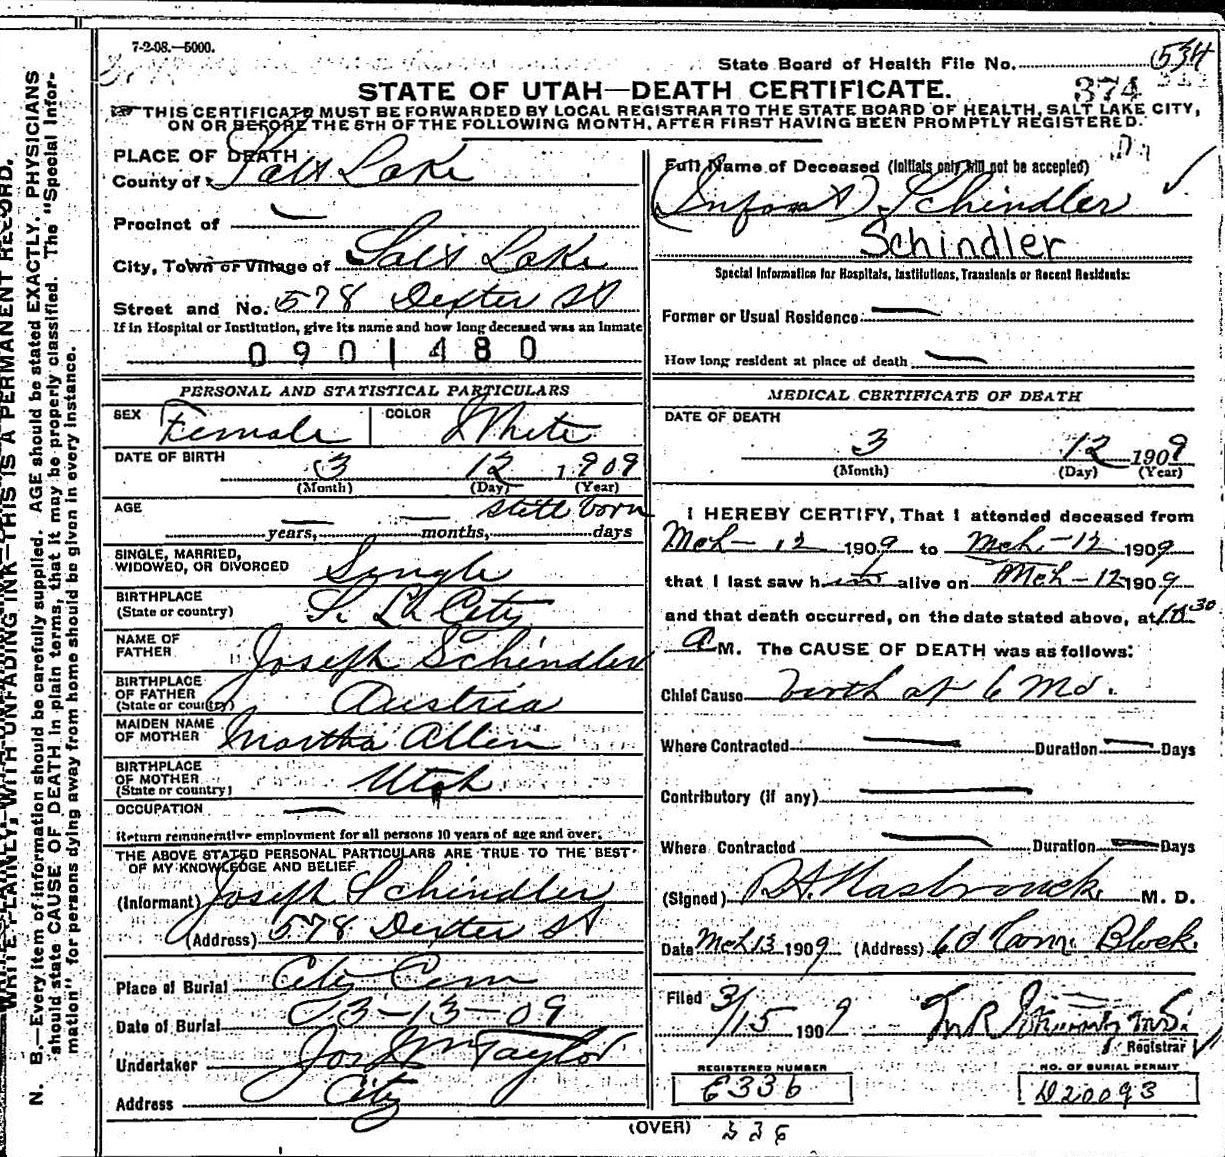 7-2-08.—5000.
State Board of Health File No. 534
374
STATE OF UTAH—DEATH CERTIFICATE.
THIS CERTIFICATE MUST BE FORWARDED BY LOCAL REGISTRAR TO THE STATE BOARD OF HEALTH, SALT LAKE CITY,
ON OR BEFORE THE 5TH OF THE FOLLOWING MONTH, AFTER FIRST HAVING BEEN PROMPTLY REGISTERED.
PLACE OF DEATH
County of Salt Lake
Precinct of —
City, Town or Village of Salt Lake
Street and No. 578 Dexter St
If in Hospital or Institution, give its name and how long deceased was an inmate
0901480
Full Name of Deceased (Initials only will not be accepted)
(Infant) Schindler
Schindler
Special Information for Hospitals, Institutions, Transients or Recent Residents:
Former or Usual Residence —
How long resident at place of death —
PERSONAL AND STATISTICAL PARTICULARS
SEX Female COLOR White
DATE OF BIRTH 3 12 1909
(Month) (Day) (Year)
AGE — years, — months, still born days
SINGLE, MARRIED,
WIDOWED, OR DIVORCED Single
BIRTHPLACE
(State or country) S. Lk City
NAME OF
FATHER Joseph Schindler
BIRTHPLACE
OF FATHER
(State or country) Austria
MAIDEN NAME
OF MOTHER Martha Allen
BIRTHPLACE
OF MOTHER
(State or country) Utah
OCCUPATION —
Return remunerative employment for all persons 10 years of age and over.
THE ABOVE STATED PERSONAL PARTICULARS ARE TRUE TO THE BEST
OF MY KNOWLEDGE AND BELIEF
(Informant) Joseph Schindler
(Address) 578 Dexter St
Place of Burial City Cem
Date of Burial 03-13-09
Undertaker Jos Wm Taylor
Address City
MEDICAL CERTIFICATE OF DEATH
DATE OF DEATH
3 12 1909
(Month) (Day) (Year)
I HEREBY CERTIFY, That I attended deceased from
Mch - 12 1909 to Mch - 12 1909
that I last saw h alive on Mch - 12 1909
and that death occurred, on the date stated above, at 10 30
A M. The CAUSE OF DEATH was as follows:
Chief Cause birth at 6 Mo.
Where Contracted — Duration — Days
Contributory (if any) —
Where Contracted — Duration — Days
(Signed) R.A. Hasbrouck M. D.
Date Mch 13 1909 (Address) 60 Com. Block.
Filed 3/15 1909
Registrar
REGISTERED NUMBER
E336
NO. OF BURIAL PERMIT
D20093
(OVER) 336
N. B.—Every item of information should be carefully supplied. AGE should be stated EXACTLY. PHYSICIANS
should state CAUSE OF DEATH in plain terms, that it may be properly classified. The "Special Infor-
mation" for persons dying away from home should be given in every instance.
WRITE PLAINLY, WITH UNFADING INK—THIS IS A PERMANENT RECORD.